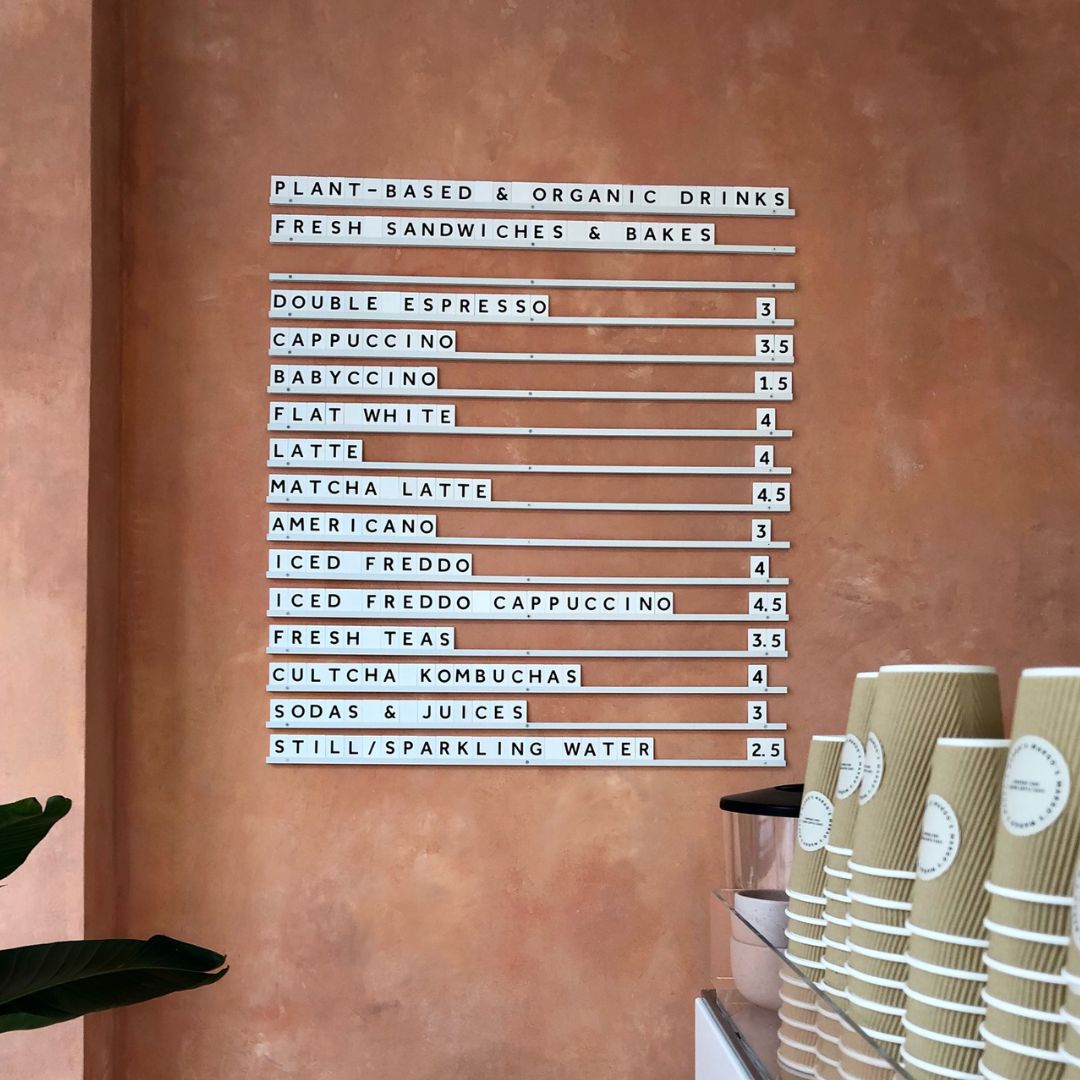 PLANT-BASED & ORGANIC DRINKS
FRESH SANDWICHES & BAKES
DOUBLE ESPRESSO 3
CAPPUCCINO 3.5
BABYCCINO 1.5
FLAT WHITE 4
LATTE 4
MATCHA LATTE 4.5
AMERICANO 3
ICED FREDDO 4
ICED FREDDO CAPPUCCINO 4.5
FRESH TEAS 3.5
CULTCHA KOMBUCHAS 4
SODAS & JUICES 3
STILL/SPARKLING WATER 2.5